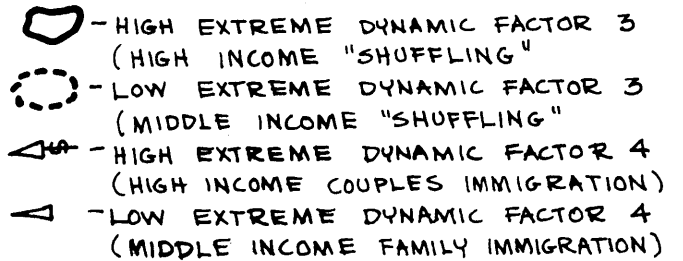 - HIGH EXTREME DYNAMIC FACTOR 3
(HIGH INCOME "SHUFFLING"
- LOW EXTREME DYNAMIC FACTOR 3
(MIDDLE INCOME "SHUFFLING"
$ - HIGH EXTREME DYNAMIC FACTOR 4
(HIGH INCOME COUPLES IMMIGRATION)
- LOW EXTREME DYNAMIC FACTOR 4
(MIDDLE INCOME FAMILY IMMIGRATION)